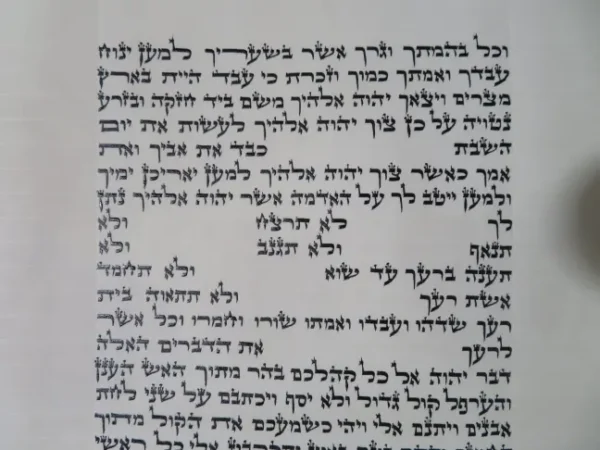 וכל בהמתך וגרך אשר בשעריך למען ינוח
עבדך ואמתך כמוך וזכרת כי עבד היית בארץ
מצרים ויצאך יהוה אלהיך משם ביד חזקה ובזרע
נטויה על כן צוך יהוה אלהיך לעשות את יום
השבת כבד את אביך ואת
אמך כאשר צוך יהוה אלהיך למען יאריכן ימיך
ולמען ייטב לך על האדמה אשר יהוה אלהיך נתן
לך לא תרצח ולא
תנאף ולא תגנב ולא
תענה ברעך עד שוא ולא תחמד
אשת רעך ולא תתאוה בית
רעך שדהו ועבדו ואמתו שורו וחמרו וכל אשר
לרעך את הדברים האלה
דבר יהוה אל כל קהלכם בהר מתוך האש הענן
והערפל קול גדול ולא יסף ויכתבם על שני לחת
אבנים ויתנם אלי ויהי כשמעכם את הקול מתוך
אלי כל ראשי